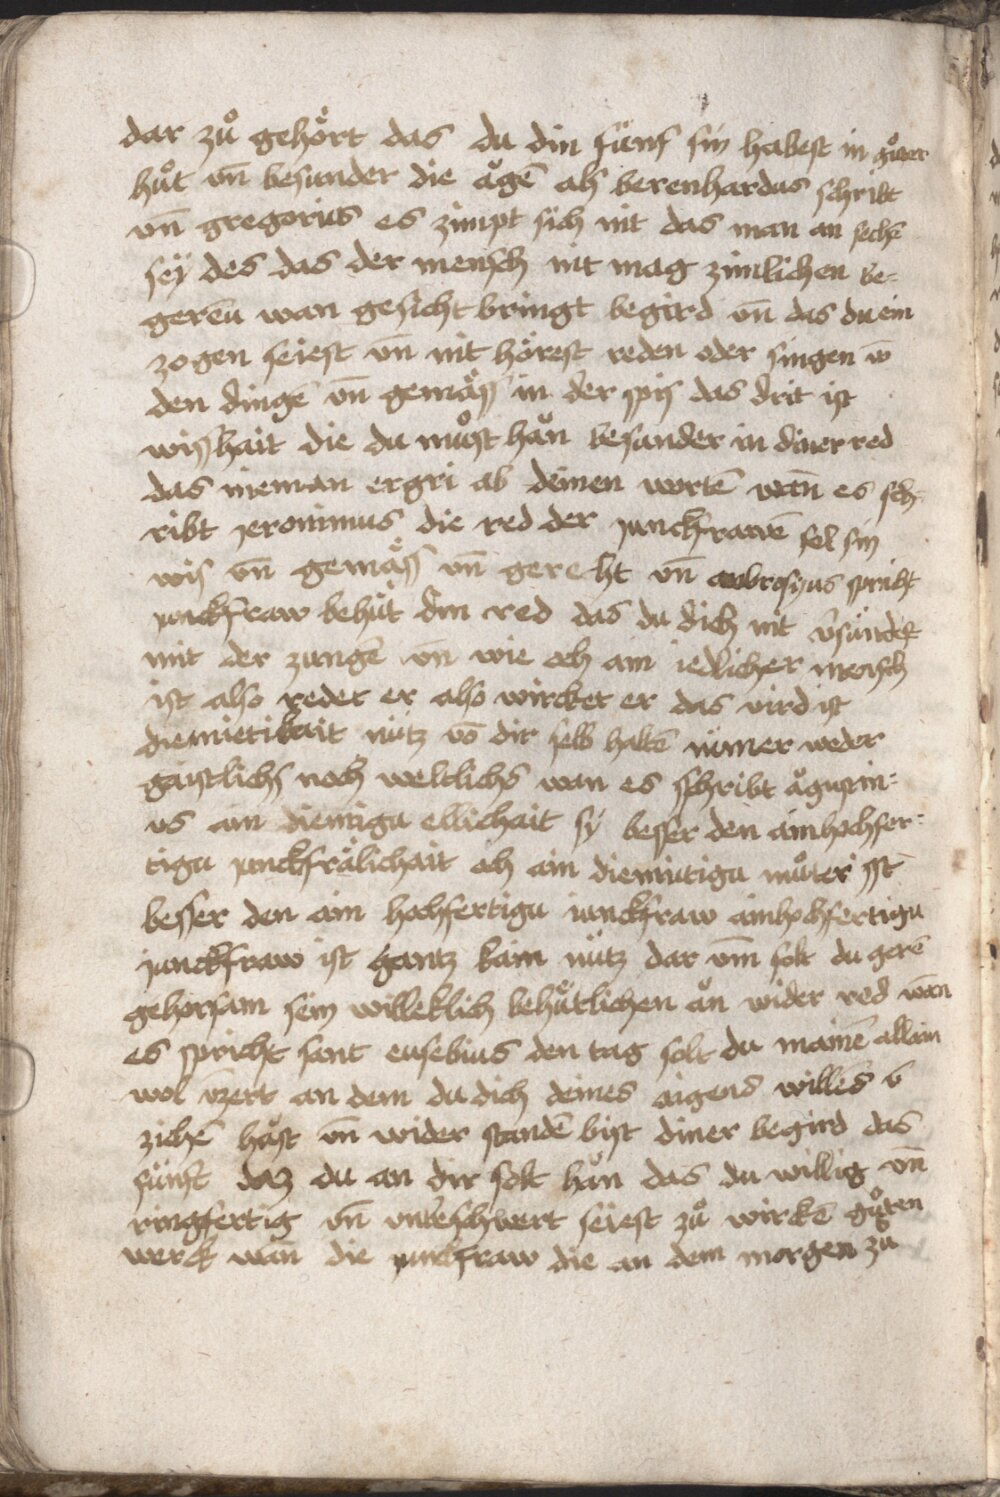 dar zuͦ gehoͤrt das du din fünf sin habest in guͦter
huͦt vn̄ besunder die aͮgē als berenhardus schribt
vn̄ gregorius es zimpt sich nit das man an sechē
seÿ des das der mensch nit mag zimlichen be-
gerēn wan gesicht bringt begird vn̄ das du ein
zogen seiest vn̄ nit hörest reden oder singen vō
den dingē vn̄ gemaͤss in der spis das drit ist
wisshait die du muͦst haͮn besunder in diner red
das nieman ergri ab deinen wortē wān es sch-
ribt jeronimus die red der junckfrawē sol sin
wis vn̄ gemaͤss vn̄ gerecht vn̄ ambrosyus spricht
junckfraw behuͤt din red das du dich nit v̄sündest
mit der zungē vn̄ wie och ain iedlicher mensch
ist also redet er also wircket er das vird ist
diemietikait nütz vō dir selb haltē nümer weder
gaistlichs noch weltlichs wan es schribt aͮgustin-
us ain diemiga ellichait sy besser den ain hochfer-
tigu junckfraͤlichait och ain diemütigu muͦter ist
besser den ain hochfertigu junckfraw ain hochfertigu
junckfraw ist gantz kain nütz dar vm̄ solt du gerē
gehorsam sein willeklich behuͤtlichen aͮn wider red wān
es spricht sant eusebius den tag solt du mainē allain
wol v̄zert an dem du dich deines aigens willes v̄
zichē haͮst vn̄ wider standē bist diner begird das
fünft daz du an dir solt haͮn das du willig vn̄
ringfertig vn̄ vnbeschwert seiest zuͦ wirckē guͦten
werck wān die junckfraw die an dem morgen zuͦ